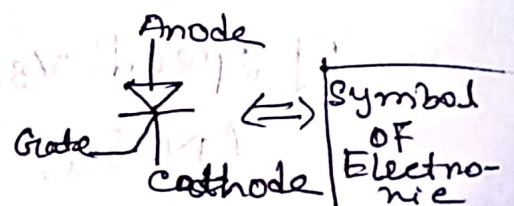 Anode
Gate
Cathode
Symbol
OF
Electro-
nic